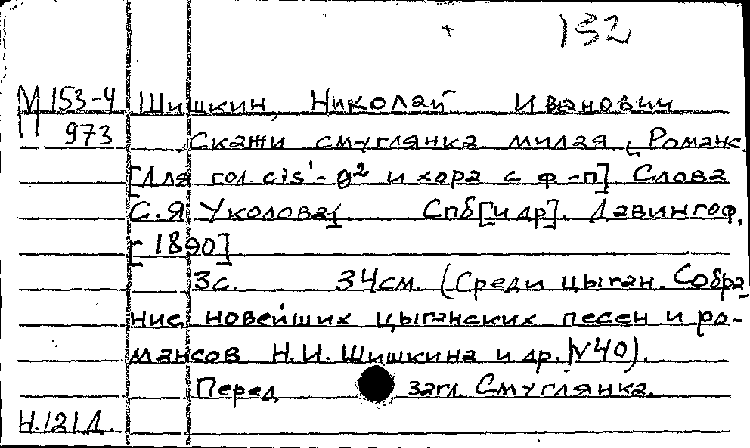 132
М 153-4 Шишкин, Николай Иванович
973 Скажи смуглянка милая. Романс
[Для гол cis¹-g² и хора с ф-п] Слова
С.Я. Уколова. Спб[и др]. Давингоф,
[1890]
3с. 34см. (Среди цыган. Собра
ние новейших цыганских песен и ро-
мансов Н.И. Шишкина и др. №40).
Перед загл. Смуглянка.
Н.121Д.